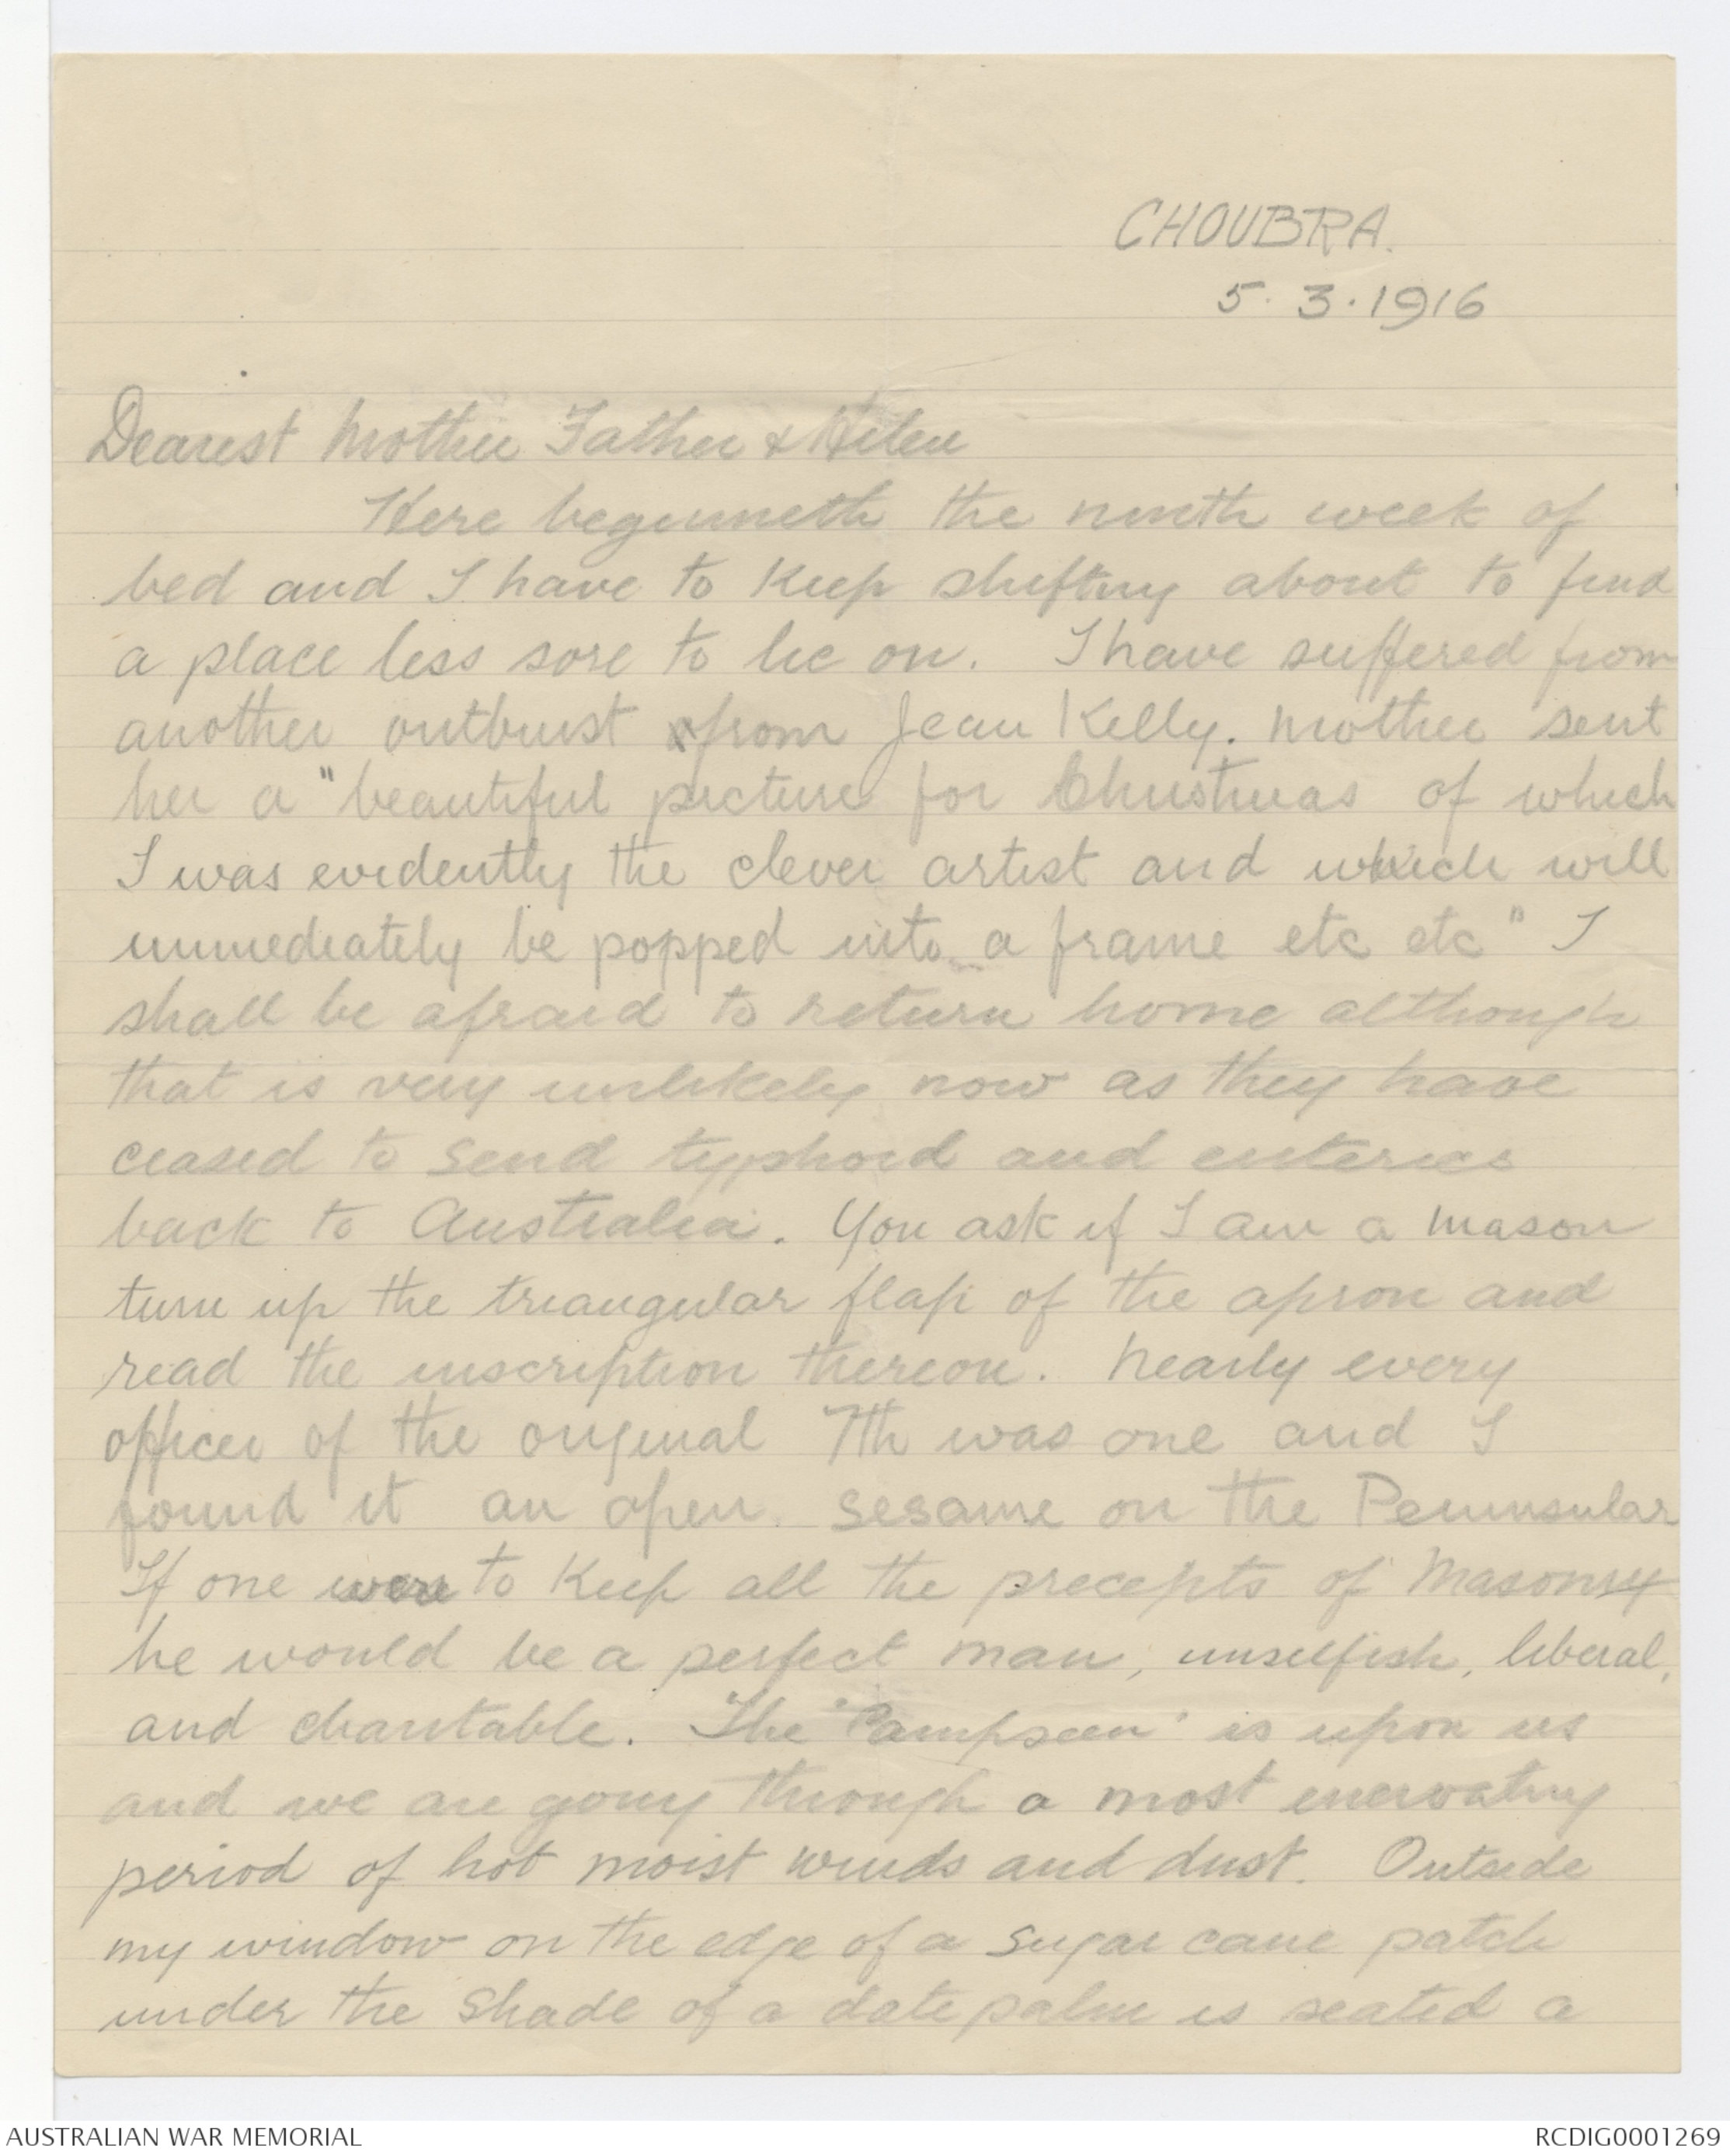 CHOUBRA.
5.3.1916
Dearest Mother Father & Helen
Here beginneth the ninth week of
bed and I have to keep shifting about to find
a place less sore to lie on. I have suffered from
another outburst from Jean Kelly. Mother sent
her a "beautiful picture for Christmas of which
I was evidently the clever artist and which will
immediately be popped into a frame etc etc" I
shall be afraid to return home although
that is very unlikely now as they have
ceased to send typhoid and enterics
back to Australia. You ask if I am a mason
turn up the triangular flap of the apron and
read the inscription thereon. Nearly every
officer of the original 7th was one and I
found it an open sesame on the Peninsular
If one were to keep all the precepts of Masonry
he would be a perfect man, unselfish, liberal,
and charitable. The is upon us
and we are going through a most enervating
period of hot moist winds and dust. Outside
my window on the edge of a sugar cane patch
under the shade of a date palm is seated a
AUSTRALIAN WAR MEMORIAL
RCDIG0001269